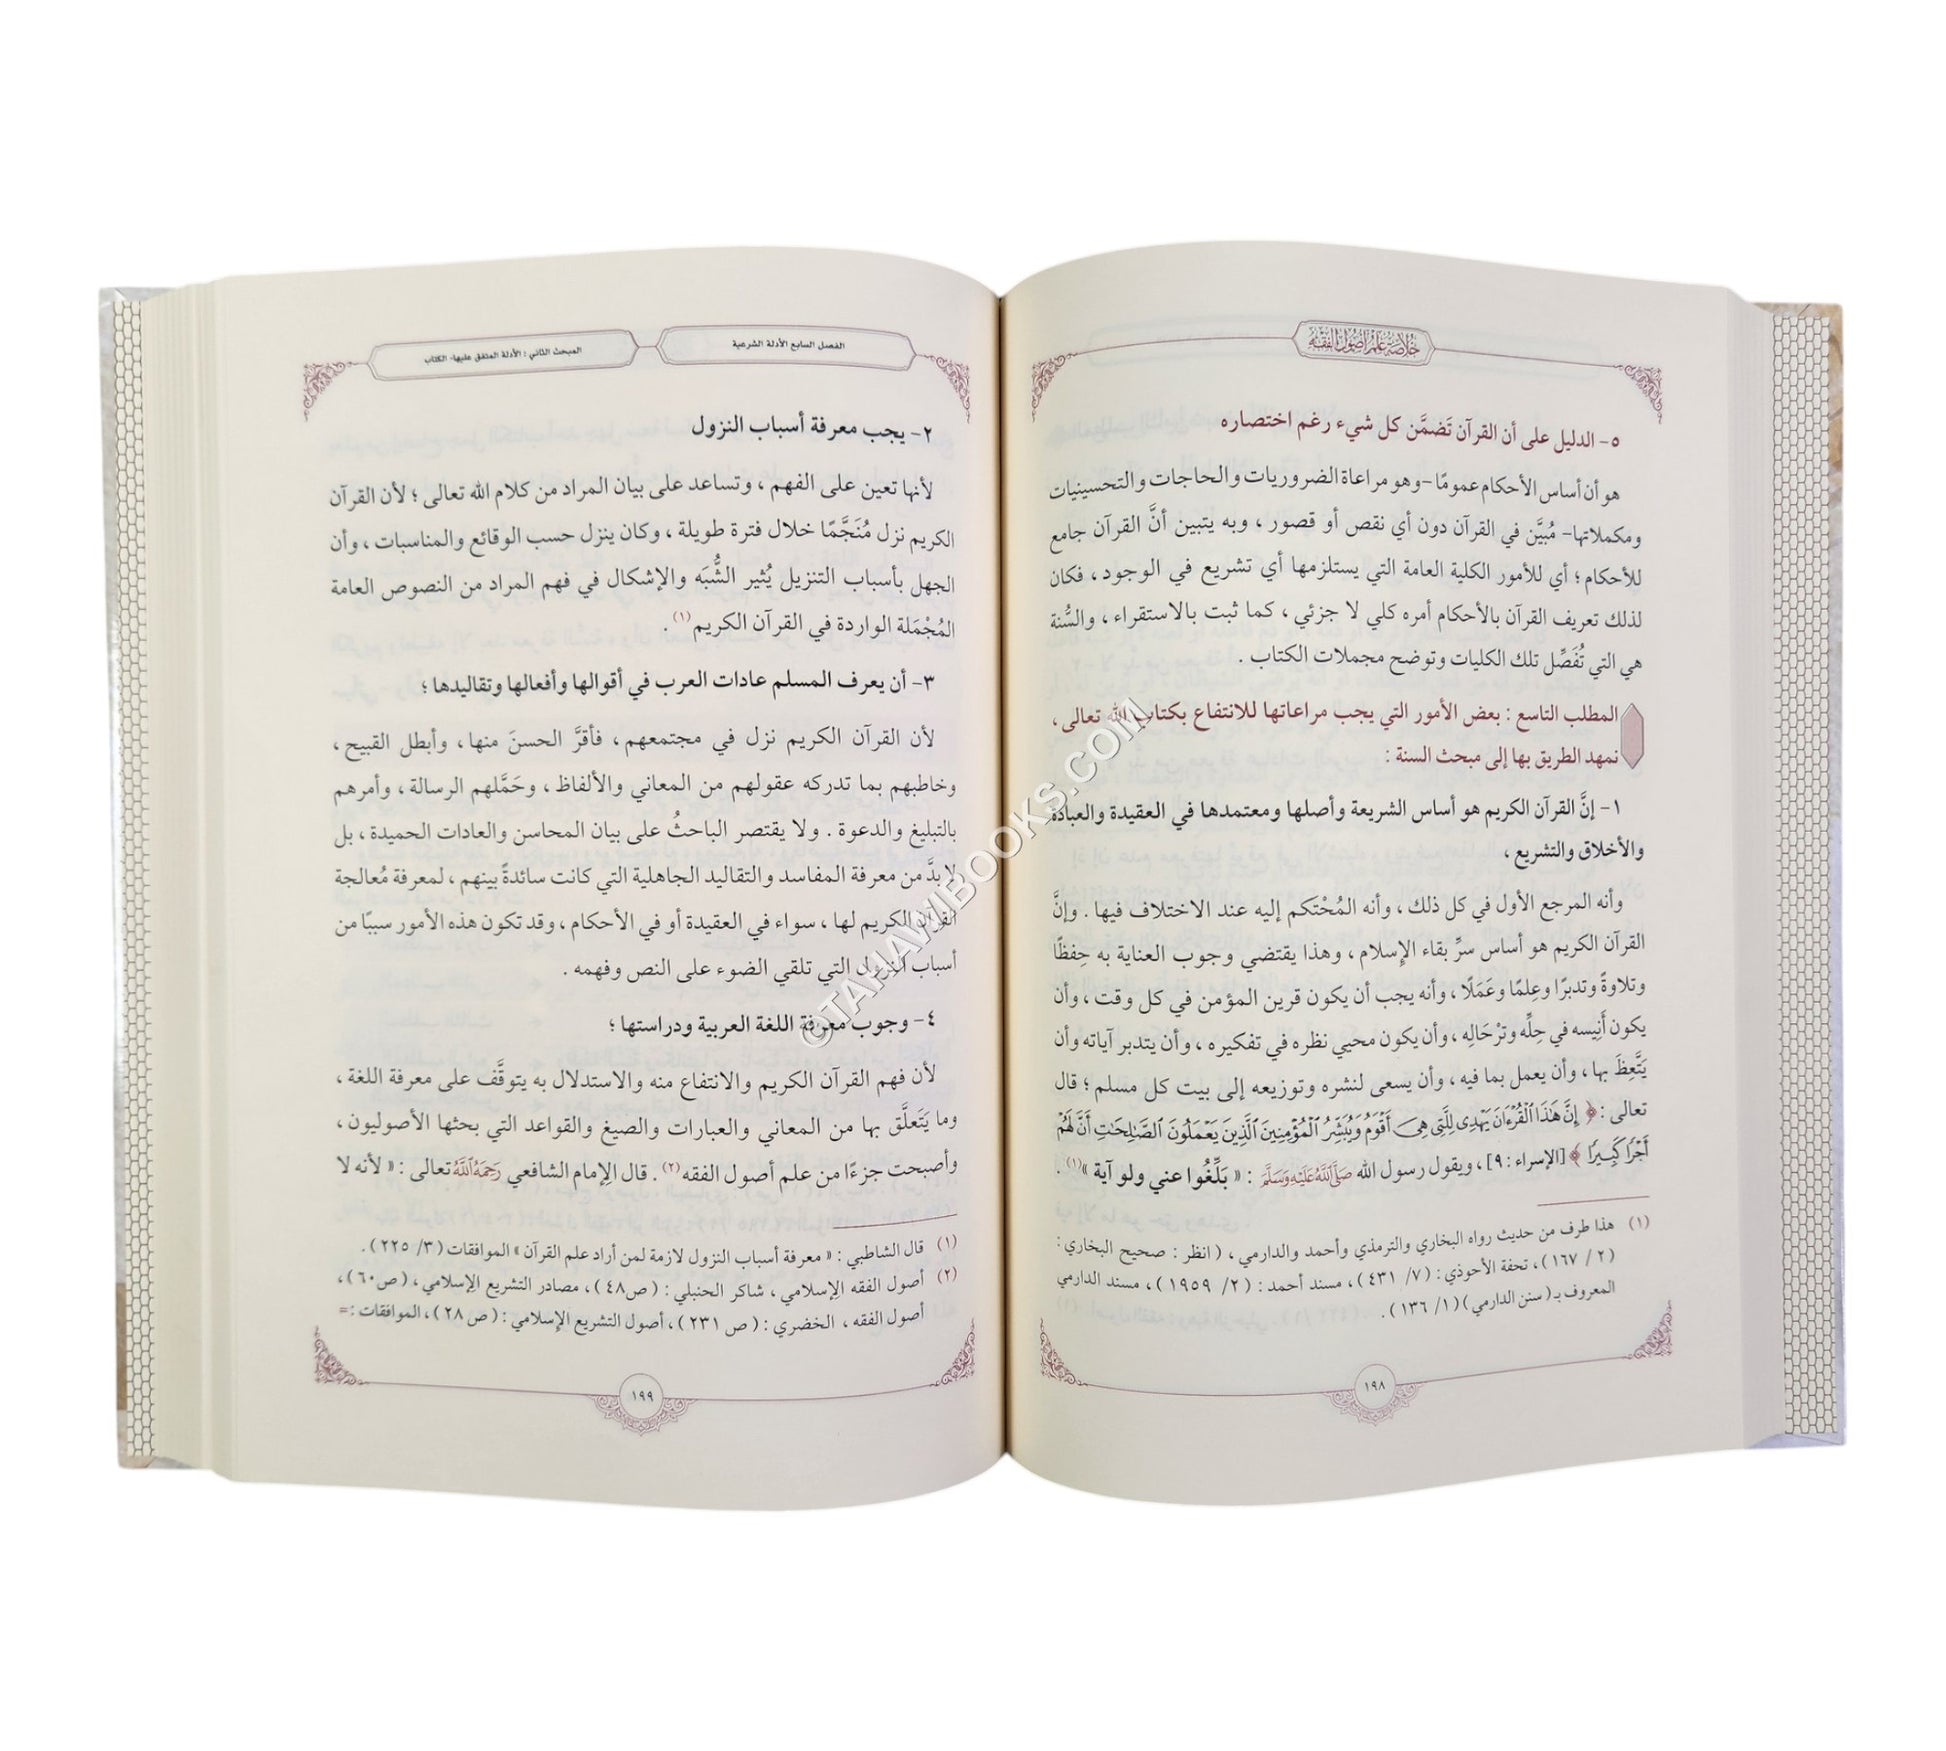 خلاصة علم أصول الفقه
٥- الدليل على أن القرآن تَضمَّن كل شيء رغم اختصاره
هو أن أساس الأحكام عمومًا -وهو مراعاة الضروريات والحاجات والتحسينيات
ومكملاتها- مُبيَّن في القرآن دون أي نقص أو قصور ، وبه يتبين أنَّ القرآن جامع
للأحكام ؛ أي للأمور الكلية العامة التي يستلزمها أي تشريع في الوجود ، فكان
لذلك تعريف القرآن بالأحكام أمره كلي لا جزئي ، كما ثبت بالاستقراء ، والسُّنة
هي التي تُفَصِّل تلك الكليات وتوضح مجملات الكتاب .
المطلب التاسع : بعض الأمور التي يجب مراعاتها للانتفاع بكتاب الله تعالى ،
نمهد الطريق بها إلى مبحث السنة :
١- إنَّ القرآن الكريم هو أساس الشريعة وأصلها ومعتمدها في العقيدة والعبادة
والأخلاق والتشريع ،
وأنه المرجع الأول في كل ذلك ، وأنه المُحْتَكم إليه عند الاختلاف فيها . وإنَّ
القرآن الكريم هو أساس سرِّ بقاء الإسلام ، وهذا يقتضي وجوب العناية به حِفظًا
وتلاوةً وتدبرًا وعِلمًا وعَمَلًا ، وأنه يجب أن يكون قرين المؤمن في كل وقت ، وأن
يكون أَنِيسه في حِلِّه وترْحَالِه ، وأن يكون محيي نظره في تفكيره ، وأن يتدبر آياته وأن
يَتَّعِظَ بها ، وأن يعمل بما فيه ، وأن يسعى لنشره وتوزيعه إلى بيت كل مسلم ؛ قال
تعالى : ﴿ إِنَّ هَٰذَا ٱلْقُرْءَانَ يَهْدِى لِلَّتِى هِىَ أَقْوَمُ وَيُبَشِّرُ ٱلْمُؤْمِنِينَ ٱلَّذِينَ يَعْمَلُونَ ٱلصَّٰلِحَٰتِ أَنَّ لَهُمْ
أَجْرًا كَبِيرًا ﴾ [الإسراء : ٩] ، ويقول رسول الله صَلَّى اللَّهُ عَلَيْهِ وَسَلَّمَ : « بَلِّغُوا عني ولو آية »(١) .
(١) هذا طرف من حديث رواه البخاري والترمذي وأحمد والدارمي ، ( انظر : صحيح البخاري :
( ٢ / ١٦٧ ) ، تحفة الأحوذي : ( ٧/ ٤٣١ ) ، مسند أحمد : ( ٢/ ١٩٥٩ ) ، مسند الدارمي
المعروف بـ ( سنن الدارمي ) ( ١/ ١٣٦ ) .
١٩٨
الفصل السابع الأدلة الشرعية
المبحث الثاني : الأدلة المتفق عليها- الكتاب
٢- يجب معرفة أسباب النزول
لأنها تعين على الفهم ، وتساعد على بيان المراد من كلام الله تعالى ؛ لأن القرآن
الكريم نزل مُنَجَّمًا خلال فترة طويلة ، وكان ينزل حسب الوقائع والمناسبات ، وأن
الجهل بأسباب التنزيل يُثير الشُّبَه والإشكال في فهم المراد من النصوص العامة
المُجْمَلة الواردة في القرآن الكريم(١) .
٣- أن يعرف المسلم عادات العرب في أقوالها وأفعالها وتقاليدها ؛
لأن القرآن الكريم نزل في مجتمعهم ، فأقرَّ الحسنَ منها ، وأبطل القبيح ،
وخاطبهم بما تدركه عقولهم من المعاني والألفاظ ، وحَمَّلهم الرسالة ، وأمرهم
بالتبليغ والدعوة . ولا يقتصر الباحثُ على بيان المحاسن والعادات الحميدة ، بل
لا بدَّ من معرفة المفاسد والتقاليد الجاهلية التي كانت سائدةً بينهم ، لمعرفة مُعالجة
القرآن الكريم لها ، سواء في العقيدة أو في الأحكام ، وقد تكون هذه الأمور سببًا من
أسباب النزول التي تلقي الضوء على النص وفهمه .
٤- وجوب معرفة اللغة العربية ودراستها ؛
لأن فهم القرآن الكريم والانتفاع منه والاستدلال به يتوقَّف على معرفة اللغة ،
وما يَتَعلَّق بها من المعاني والعبارات والصيغ والقواعد التي بحثها الأصوليون ،
وأصبحت جزءًا من علم أصول الفقه(٢) . قال الإمام الشافعي رَحِمَهُ اللَّهُ تعالى : « لأنه لا
(١) قال الشاطبي : « معرفة أسباب النزول لازمة لمن أراد علم القرآن » الموافقات ( ٣/ ٢٢٥ ) .
(٢) أصول الفقه الإسلامي ، شاكر الحنبلي : ( ص٤٨ ) ، مصادر التشريع الإسلامي ، ( ص٦٠ ) ،
أصول الفقه ، الخضري : ( ص ٢٣١ ) ، أصول التشريع الإسلامي : ( ص ٢٨ ) ، الموافقات : =
١٩٩
©TAHAWIBOOKS.COM